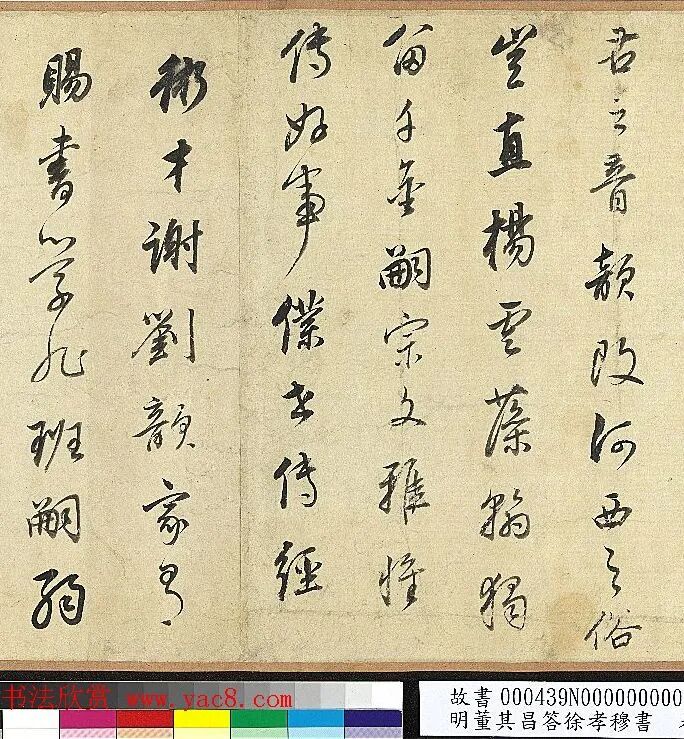 右之音韻改河西之俗
豈直楊雲藻翰獨
留千金嗣宗文雅惟
傳好事僕世傳經
術才謝劉歆家有
賜書學非班嗣弱
书法欣赏 www.yac8.com
故書 000439N000000000
明董其昌答徐孝穆書